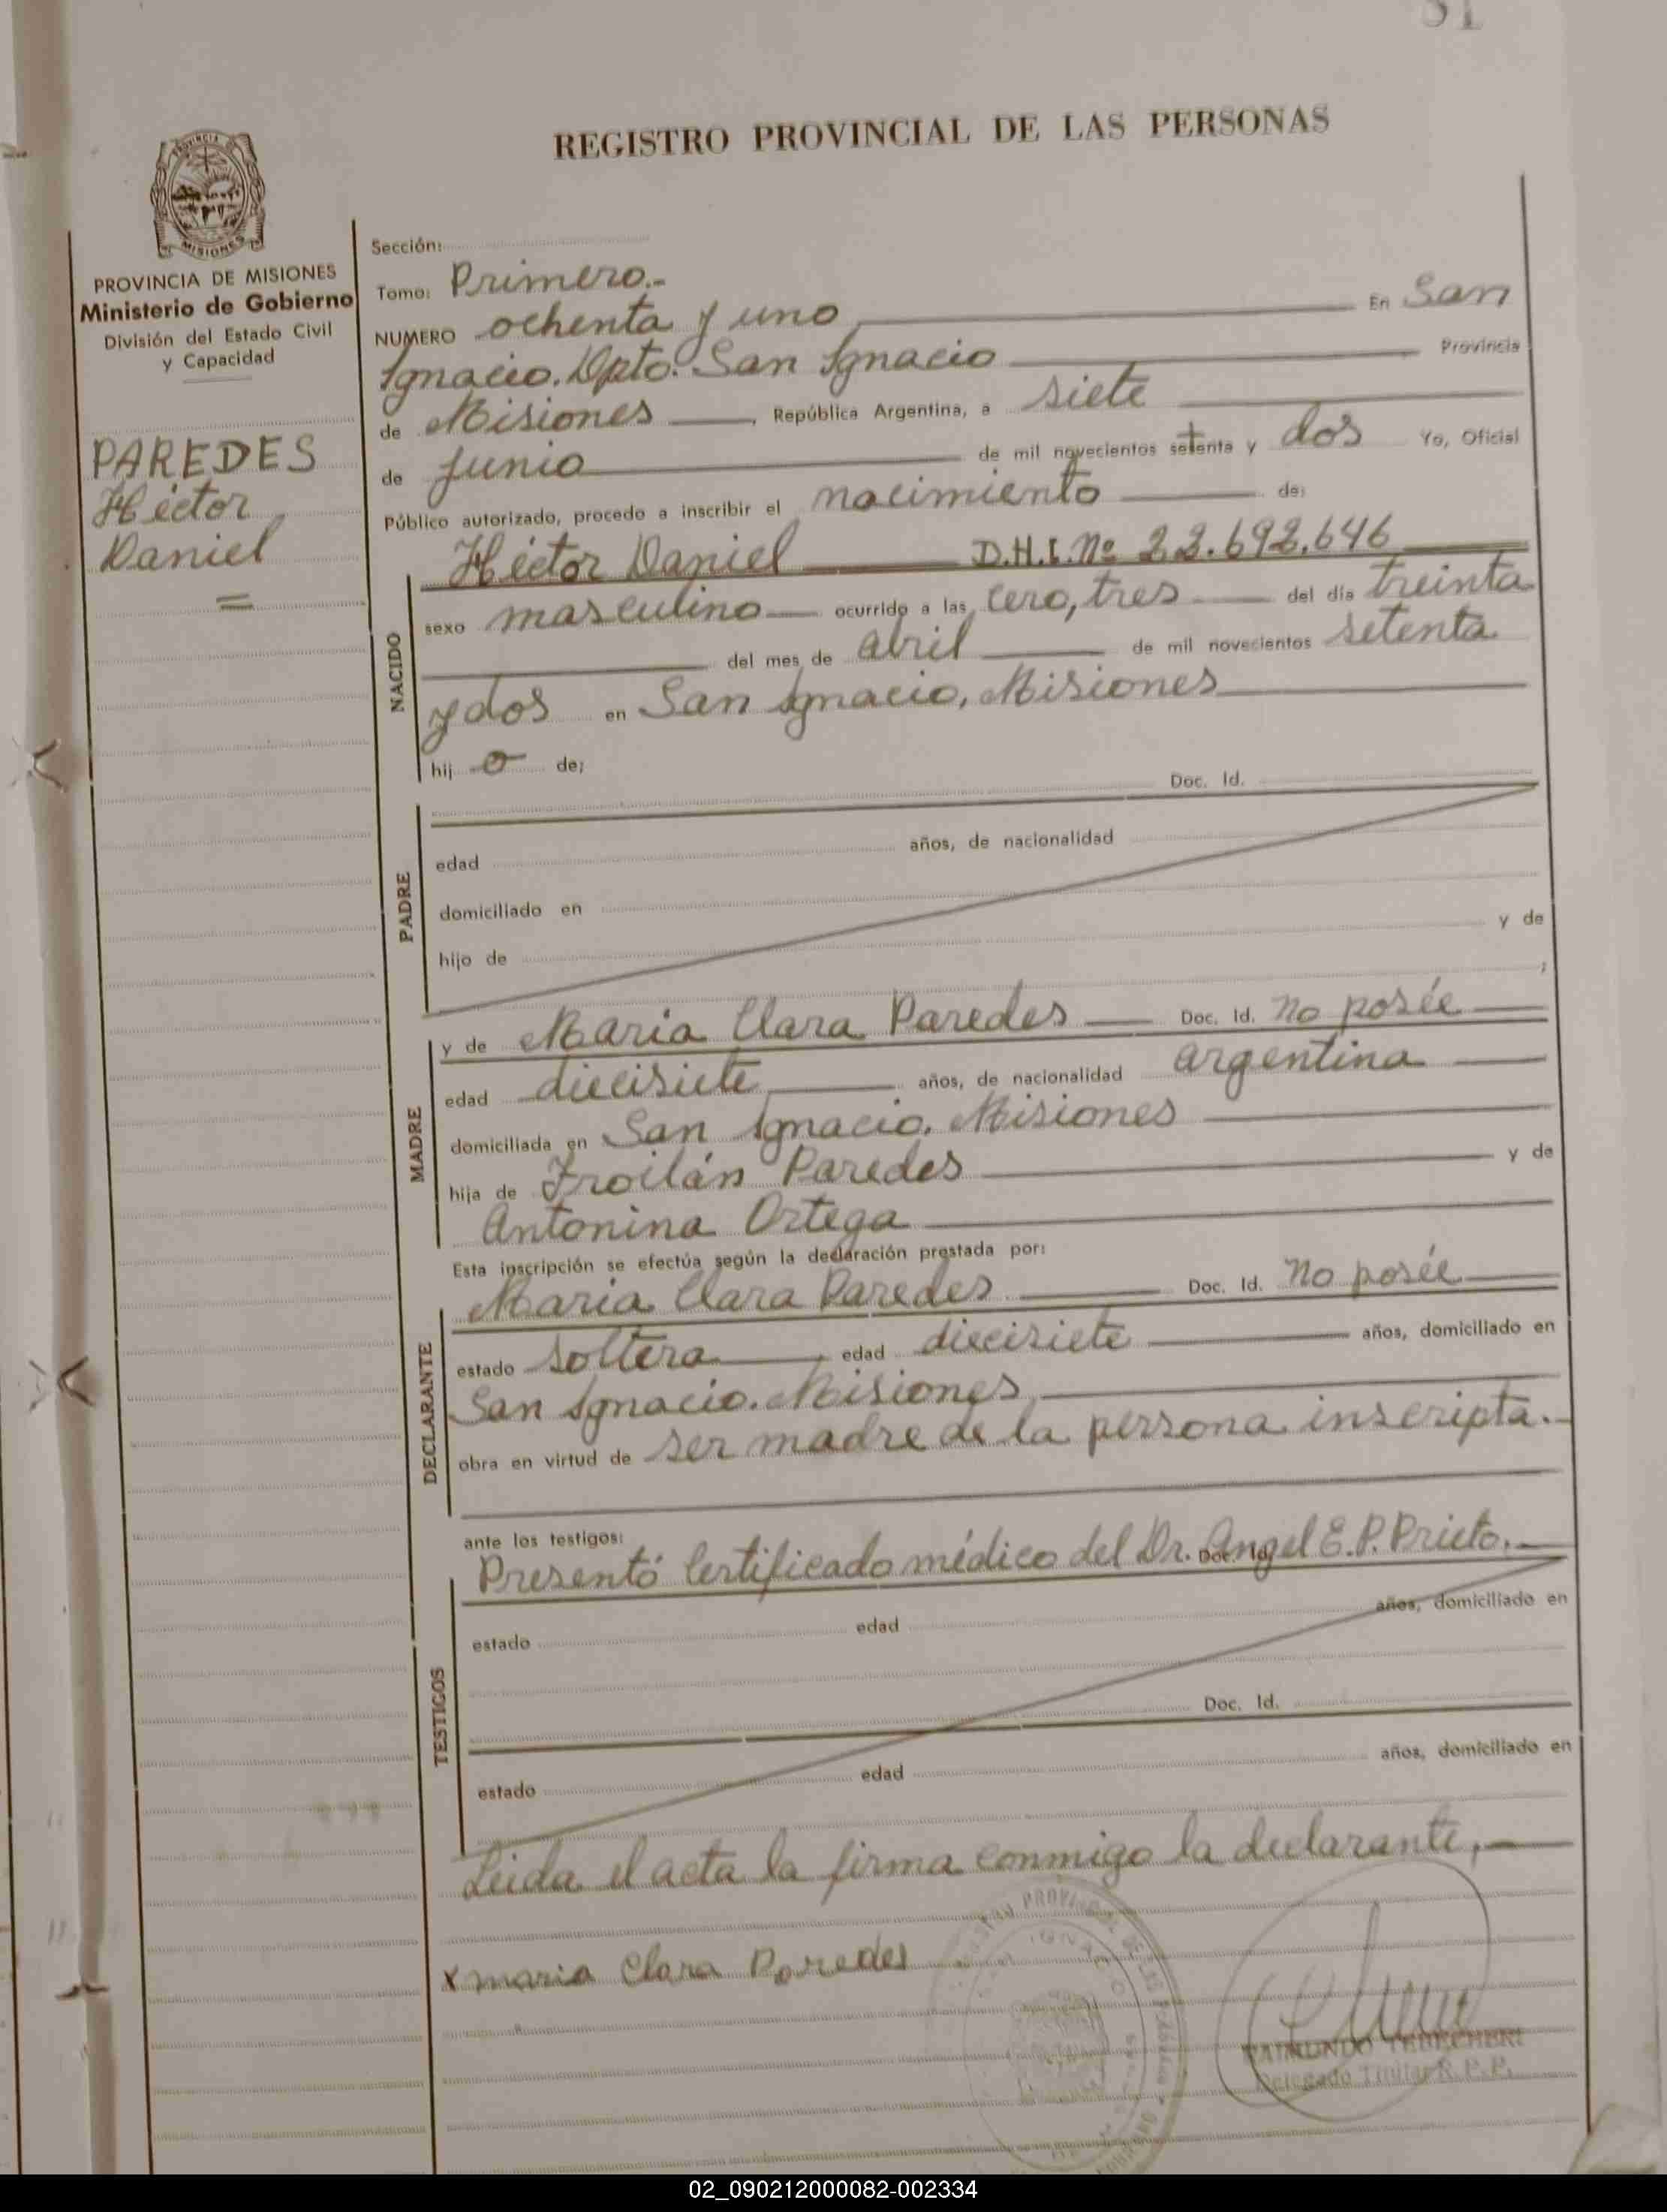 REGISTRO PROVINCIAL DE LAS PERSONAS
PROVINCIA DE MISIONES
Ministerio de Gobierno
División del Estado Civil
y Capacidad
PAREDES
Héctor
Daniel
Sección:
Tomo: Primero.-
NUMERO ochenta y uno En San
Ignacio. Dpto. San Ignacio Provincia
de Misiones, República Argentina, a siete
de junio de mil novecientos setenta y dos Yo, Oficial
Público autorizado, procedo a inscribir el nacimiento de:
NACIDO
Héctor Daniel D.N.I. Nº 22.692.646
sexo masculino ocurrido a las cero, tres del día treinta
del mes de abril de mil novecientos setenta
y dos en San Ignacio, Misiones
hij o de;
PADRE
Doc. Id.
edad años, de nacionalidad
domiciliado en
hijo de y de
;
MADRE
y de Maria Clara Paredes Doc. Id. no posée
edad diecisiete años, de nacionalidad argentina
domiciliada en San Ignacio. Misiones
hija de Froilán Paredes y de
Antonina Ortega
Esta inscripción se efectúa según la declaración prestada por:
DECLARANTE
Maria Clara Paredes Doc. Id. no posée
estado soltera, edad diecisiete años, domiciliado en
San Ignacio. Misiones
obra en virtud de ser madre de la persona inscripta.-
ante los testigos:
TESTIGOS
Presentó Certificado médico del Dr. Angel E.P. Prieto.-
estado edad años, domiciliado en
Doc. Id.
estado edad años, domiciliado en
Leida el acta la firma conmigo la declarante,-
x maria Clara Paredes
Delegado Titular R. P. P.
02_090212000082-002334